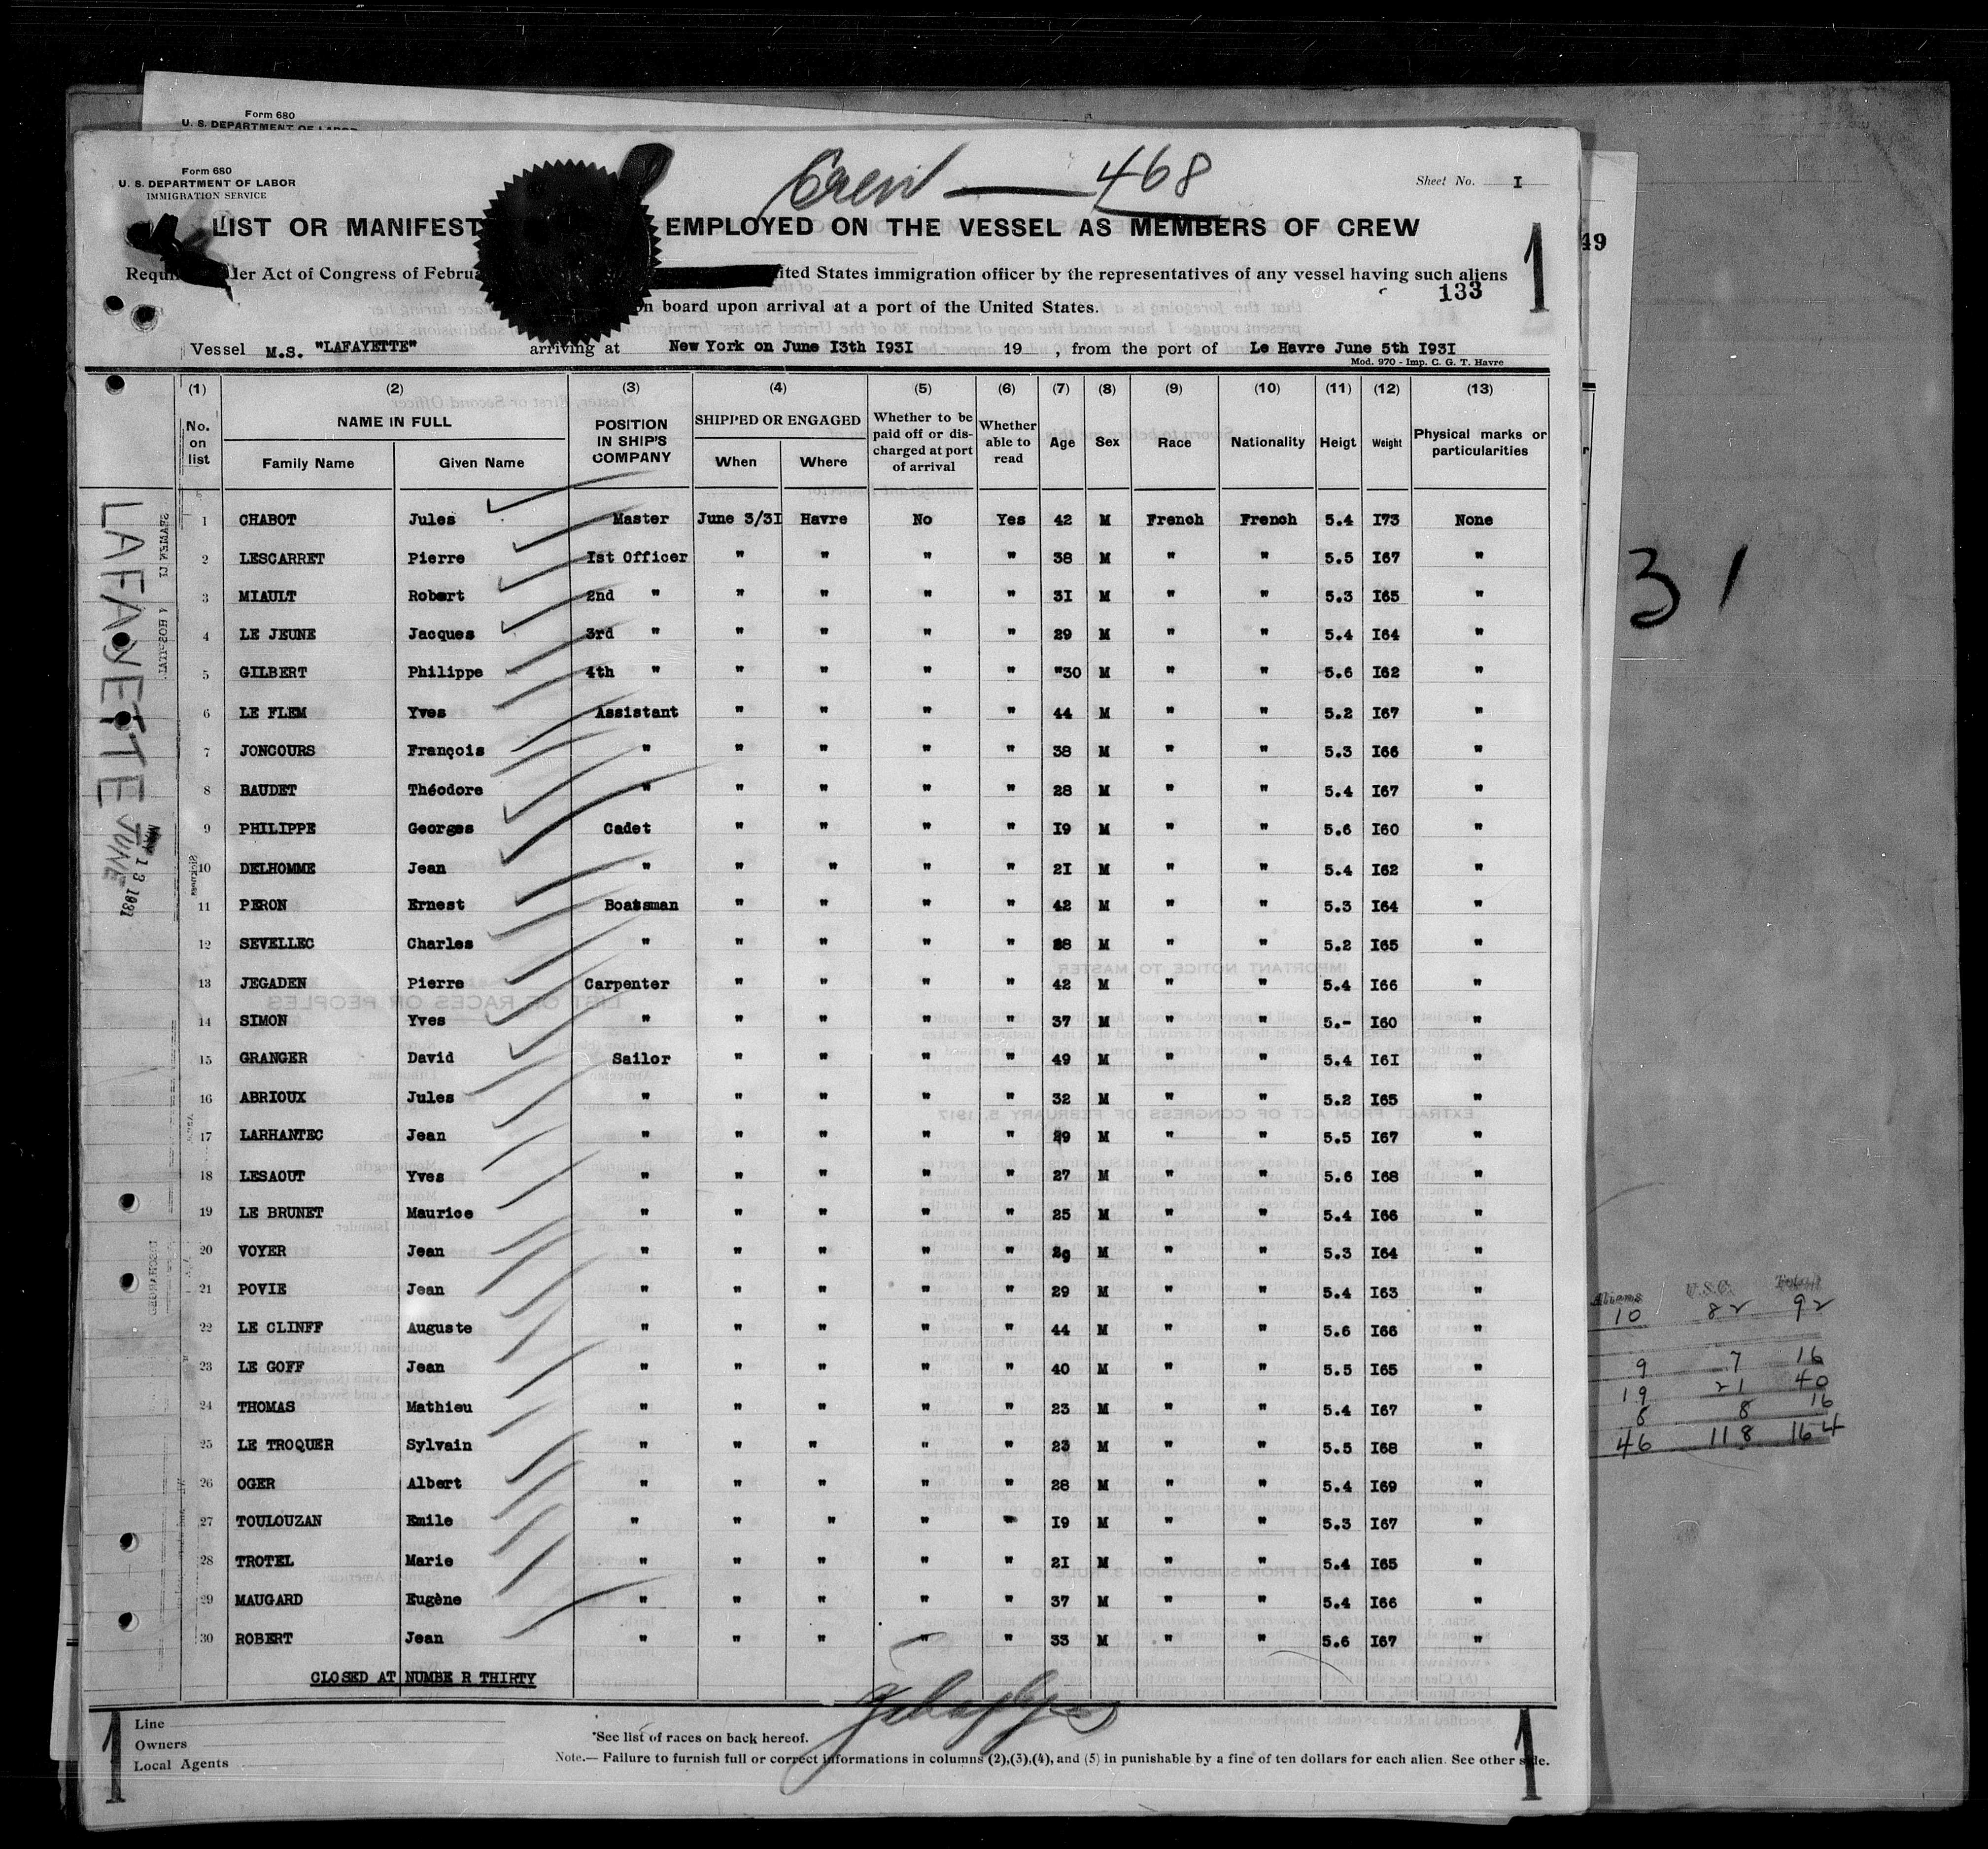 Form 680
U. S. DEPARTMENT OF LABOR
Form 680
U. S. DEPARTMENT OF LABOR
IMMIGRATION SERVICE
Crew — 468
Sheet No. I
LIST OR MANIFEST EMPLOYED ON THE VESSEL AS MEMBERS OF CREW
1
49
Act of Congress of States immigration officer by the representatives of any vessel having such aliens
133
board upon arrival at a port of the United States.
Vessel M.S. "LAFAYETTE" arriving at New York on June I3th I93I 19 , from the port of Le Havre June 5th I93I
Mod. 970 - Imp. C. G. T. Havre
(1) (2) (3) (4) (5) (6) (7) (8) (9) (10) (11) (12) (13)
No. on list NAME IN FULL Family Name Given Name POSITION IN SHIP'S COMPANY SHIPPED OR ENGAGED When Where Whether to be paid off or discharged at port of arrival Whether able to read Age Sex Race Nationality Heigt Weight Physical marks or particularities
1 CHABOT Jules Master June 3/3I Havre No Yes 42 M French French 5.4 I73 None
2 LESCARRET Pierre Ist Officer " " " " 38 M " " 5.5 I67 "
3 MIAULT Robert 2nd " " " " " 3I M " " 5.3 I65 "
4 LE JEUNE Jacques 3rd " " " " " 29 M " " 5.4 I64 "
5 GILBERT Philippe 4th " " " " " "30 M " " 5.6 I62 "
6 LE FLEM Yves Assistant " " " " 44 M " " 5.2 I67 "
7 JONCOURS François " " " " " 38 M " " 5.3 I66 "
8 BAUDET Théodore " " " " " 28 M " " 5.4 I67 "
9 PHILIPPE Georges Cadet " " " " I9 M " " 5.6 I60 "
10 DELHOMME Jean " " " " " 2I M " " 5.4 I62 "
11 PERON Ernest Boatsman " " " " 42 M " " 5.3 I64 "
12 SEVELLEC Charles " " " " " M " " 5.2 I65 "
13 JEGADEN Pierre Carpenter " " " " 42 M " " 5.4 I66 "
14 SIMON Yves " " " " " 37 M " " 5.- I60 "
15 GRANGER David Sailor " " " " 49 M " " 5.4 I6I "
16 ABRIOUX Jules " " " " " 32 M " " 5.2 I65 "
17 LARHANTEC Jean " " " " " 29 M " " 5.5 I67 "
18 LESAOUT Yves " " " " " 27 M " " 5.6 I68 "
19 LE BRUNET Maurice " " " " " 25 M " " 5.4 I66 "
20 VOYER Jean " " " " " M " " 5.3 I64 "
21 POVIE Jean " " " " " 29 M " " 5.4 I63 "
22 LE CLINFF Auguste " " " " " 44 M " " 5.6 I66 "
23 LE GOFF Jean " " " " " 40 M " " 5.5 I65 "
24 THOMAS Mathieu " " " " " 23 M " " 5.4 I67 "
25 LE TROQUER Sylvain " " " " " 23 M " " 5.5 I68 "
26 OGER Albert " " " " " 28 M " " 5.4 I69 "
27 TOULOUZAN Emile " " " " " I9 M " " 5.3 I67 "
28 TROTEL Marie " " " " " 2I M " " 5.4 I65 "
29 MAUGARD Eugène " " " " " 37 M " " 5.4 I66 "
30 ROBERT Jean " " " " " 33 M " " 5.6 I67 "
CLOSED AT NUMBE R THIRTY
LAFAYETTE
JUNE 13 1931
1
Line
Owners
Local Agents
*See list of races on back hereof.
Note.— Failure to furnish full or correct informations in columns (2),(3),(4), and (5) in punishable by a fine of ten dollars for each alien. See other side.
1
31
Aliens U.S.C. Total
10 82 92
9 7 16
19 21 40
8 8 16
46 118 164